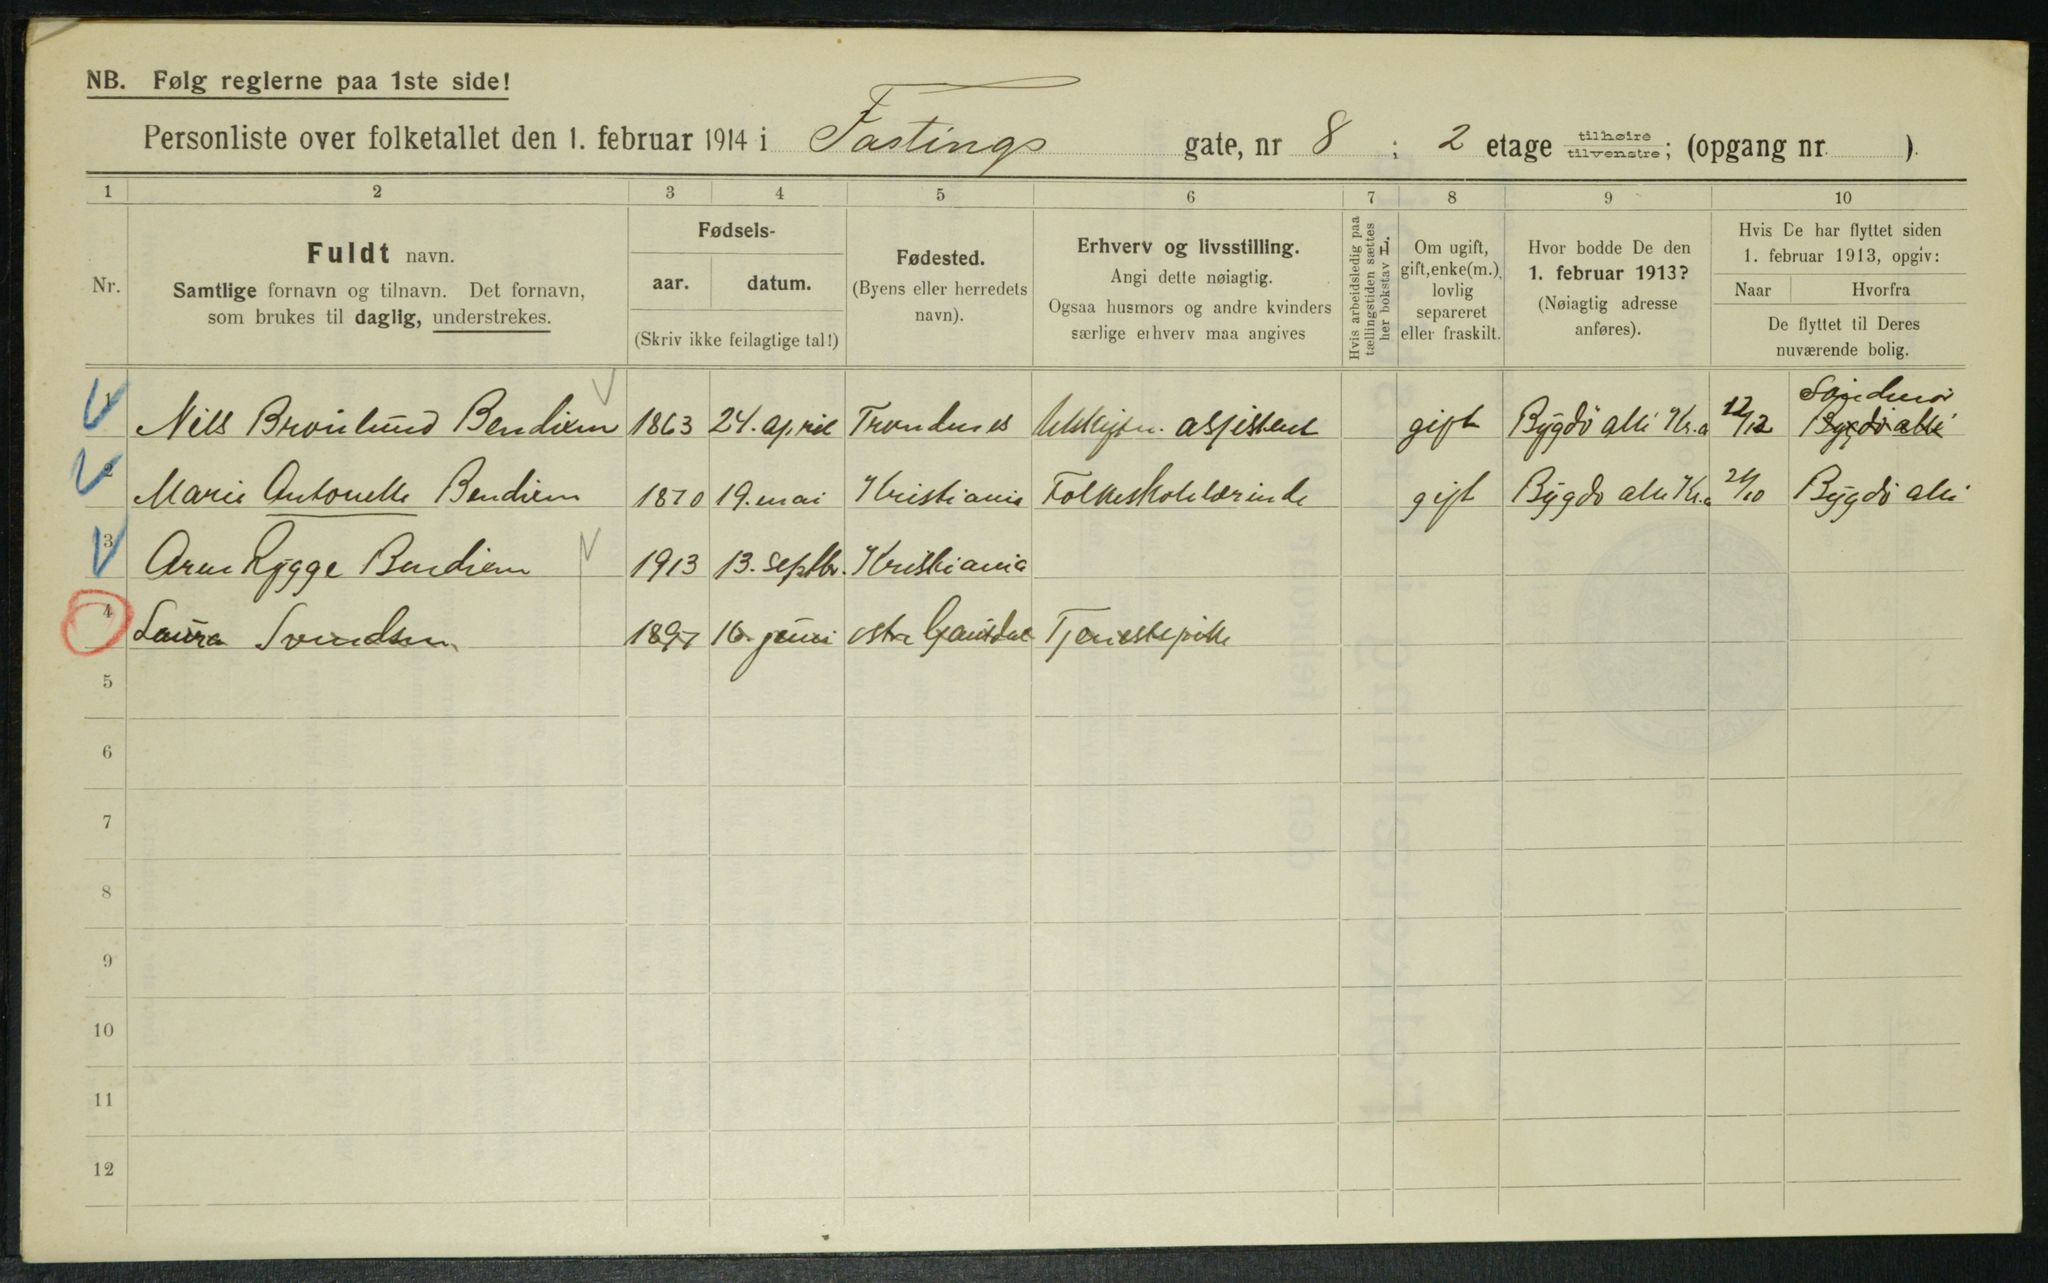 NB. Følg reglerne paa 1ste side!
Personliste over folketallet den 1. februar 1914 i Fastings gate, nr 8 ; 2 etage tilhøire tilvenstre; (opgang nr. ).
1 2 3 4 5 6 7 8 9 10
Nr.
Fuldt navn.
Samtlige fornavn og tilnavn. Det fornavn,
som brukes til daglig, understrekes.
Fødsels-
aar. datum.
(Skriv ikke feilagtige tal!)
Fødested.
(Byens eller herredets
navn).
Erhverv og livsstilling.
Angi dette nøiagtig.
Ogsaa husmors og andre kvinders
særlige erhverv maa angives
Hvis arbeidsledig paa
tællingstiden sættes
her bokstav L.
Om ugift,
gift, enke(m.),
lovlig
separeret
eller fraskilt.
Hvor bodde De den
1. februar 1913?
(Nøiagtig adresse
anføres).
Hvis De har flyttet siden
1. februar 1913, opgiv:
Naar Hvorfra
De flyttet til Deres
nuværende bolig.
1 Nils Brønlund Bendixen 1863 24. april Trondenes assistent gift Bygdø allé Kr.a 12/12 Bygdø allé
2 Marie Antonette Bendixen 1870 19. mai Kristiania Folkeskolelærinde gift Bygdø allé Kr.a 24/10 Bygdø allé
3 Rygge Bendixen 1913 13. septbr. Kristiania
4 Laura Svendsen 1897 16. juni østre Gausdal Tjenestepike
5
6
7
8
9
10
11
12